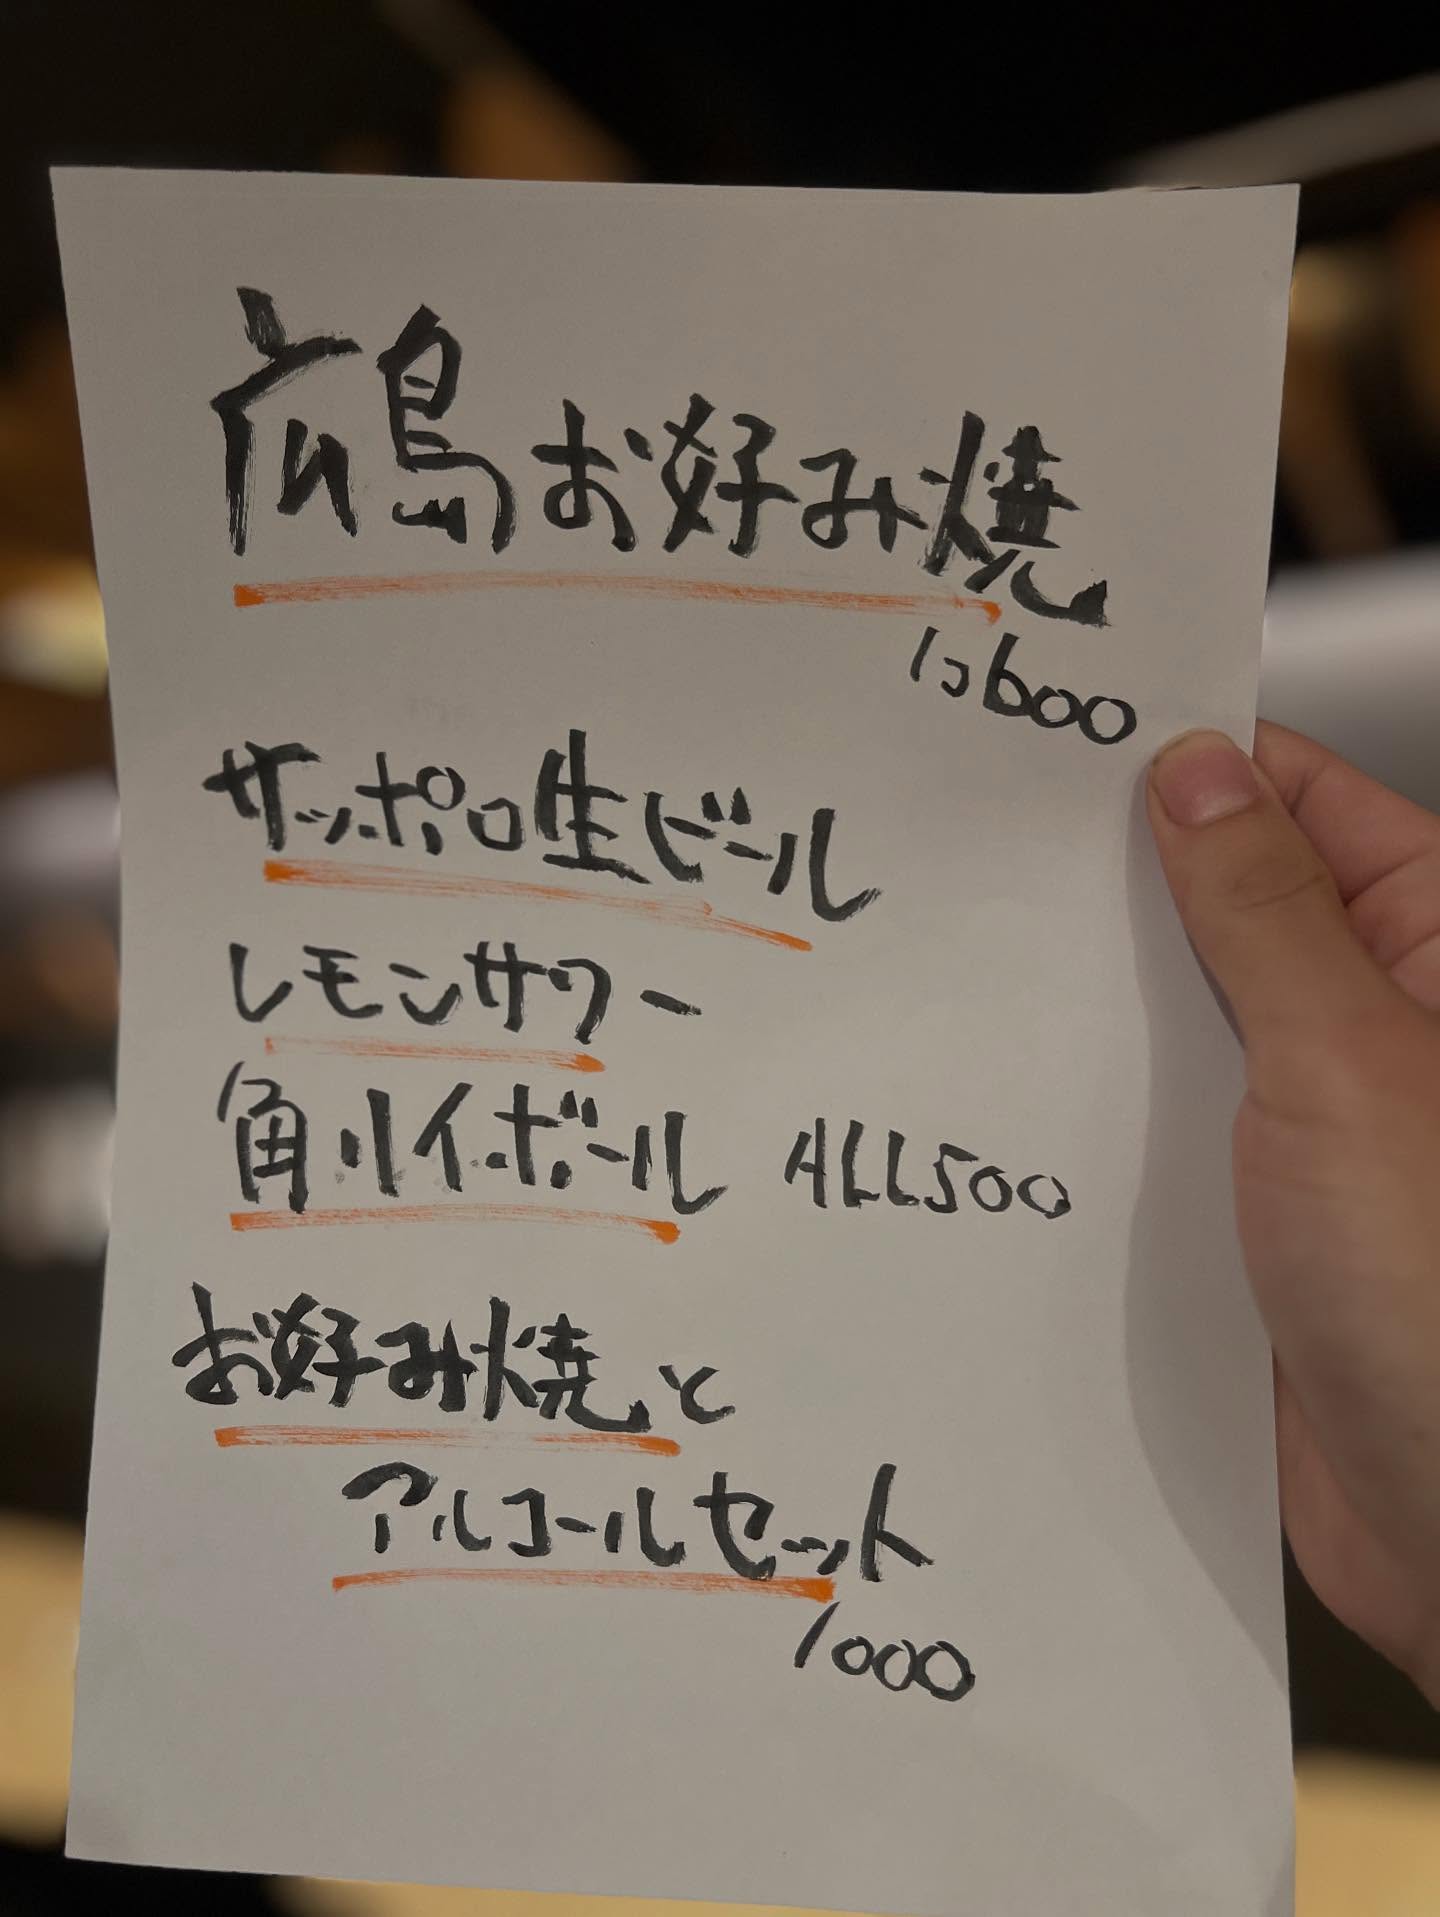 広島お好み焼
1コ600
サッポロ生ビール
レモンサワー
角ハイボール ALL500
お好み焼と
アルコールセット
1000